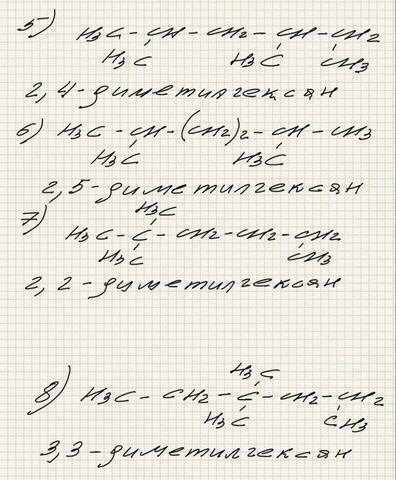 5) H₃C - CH - CH₂ - CH - CH₂
H₃C H₃C CH₃
2,4-диметилгексан
6) H₃C - CH - (CH₂)₂ - CH - CH₃
H₃C H₃C
2,5-диметилгексан
H₃C
7) H₃C - C - CH₂ - CH₂ - CH₂
H₃C CH₃
2,2-диметилгексан
H₃C
8) H₃C - CH₂ - C - CH₂ - CH₂
H₃C CH₃
3,3-диметилгексан